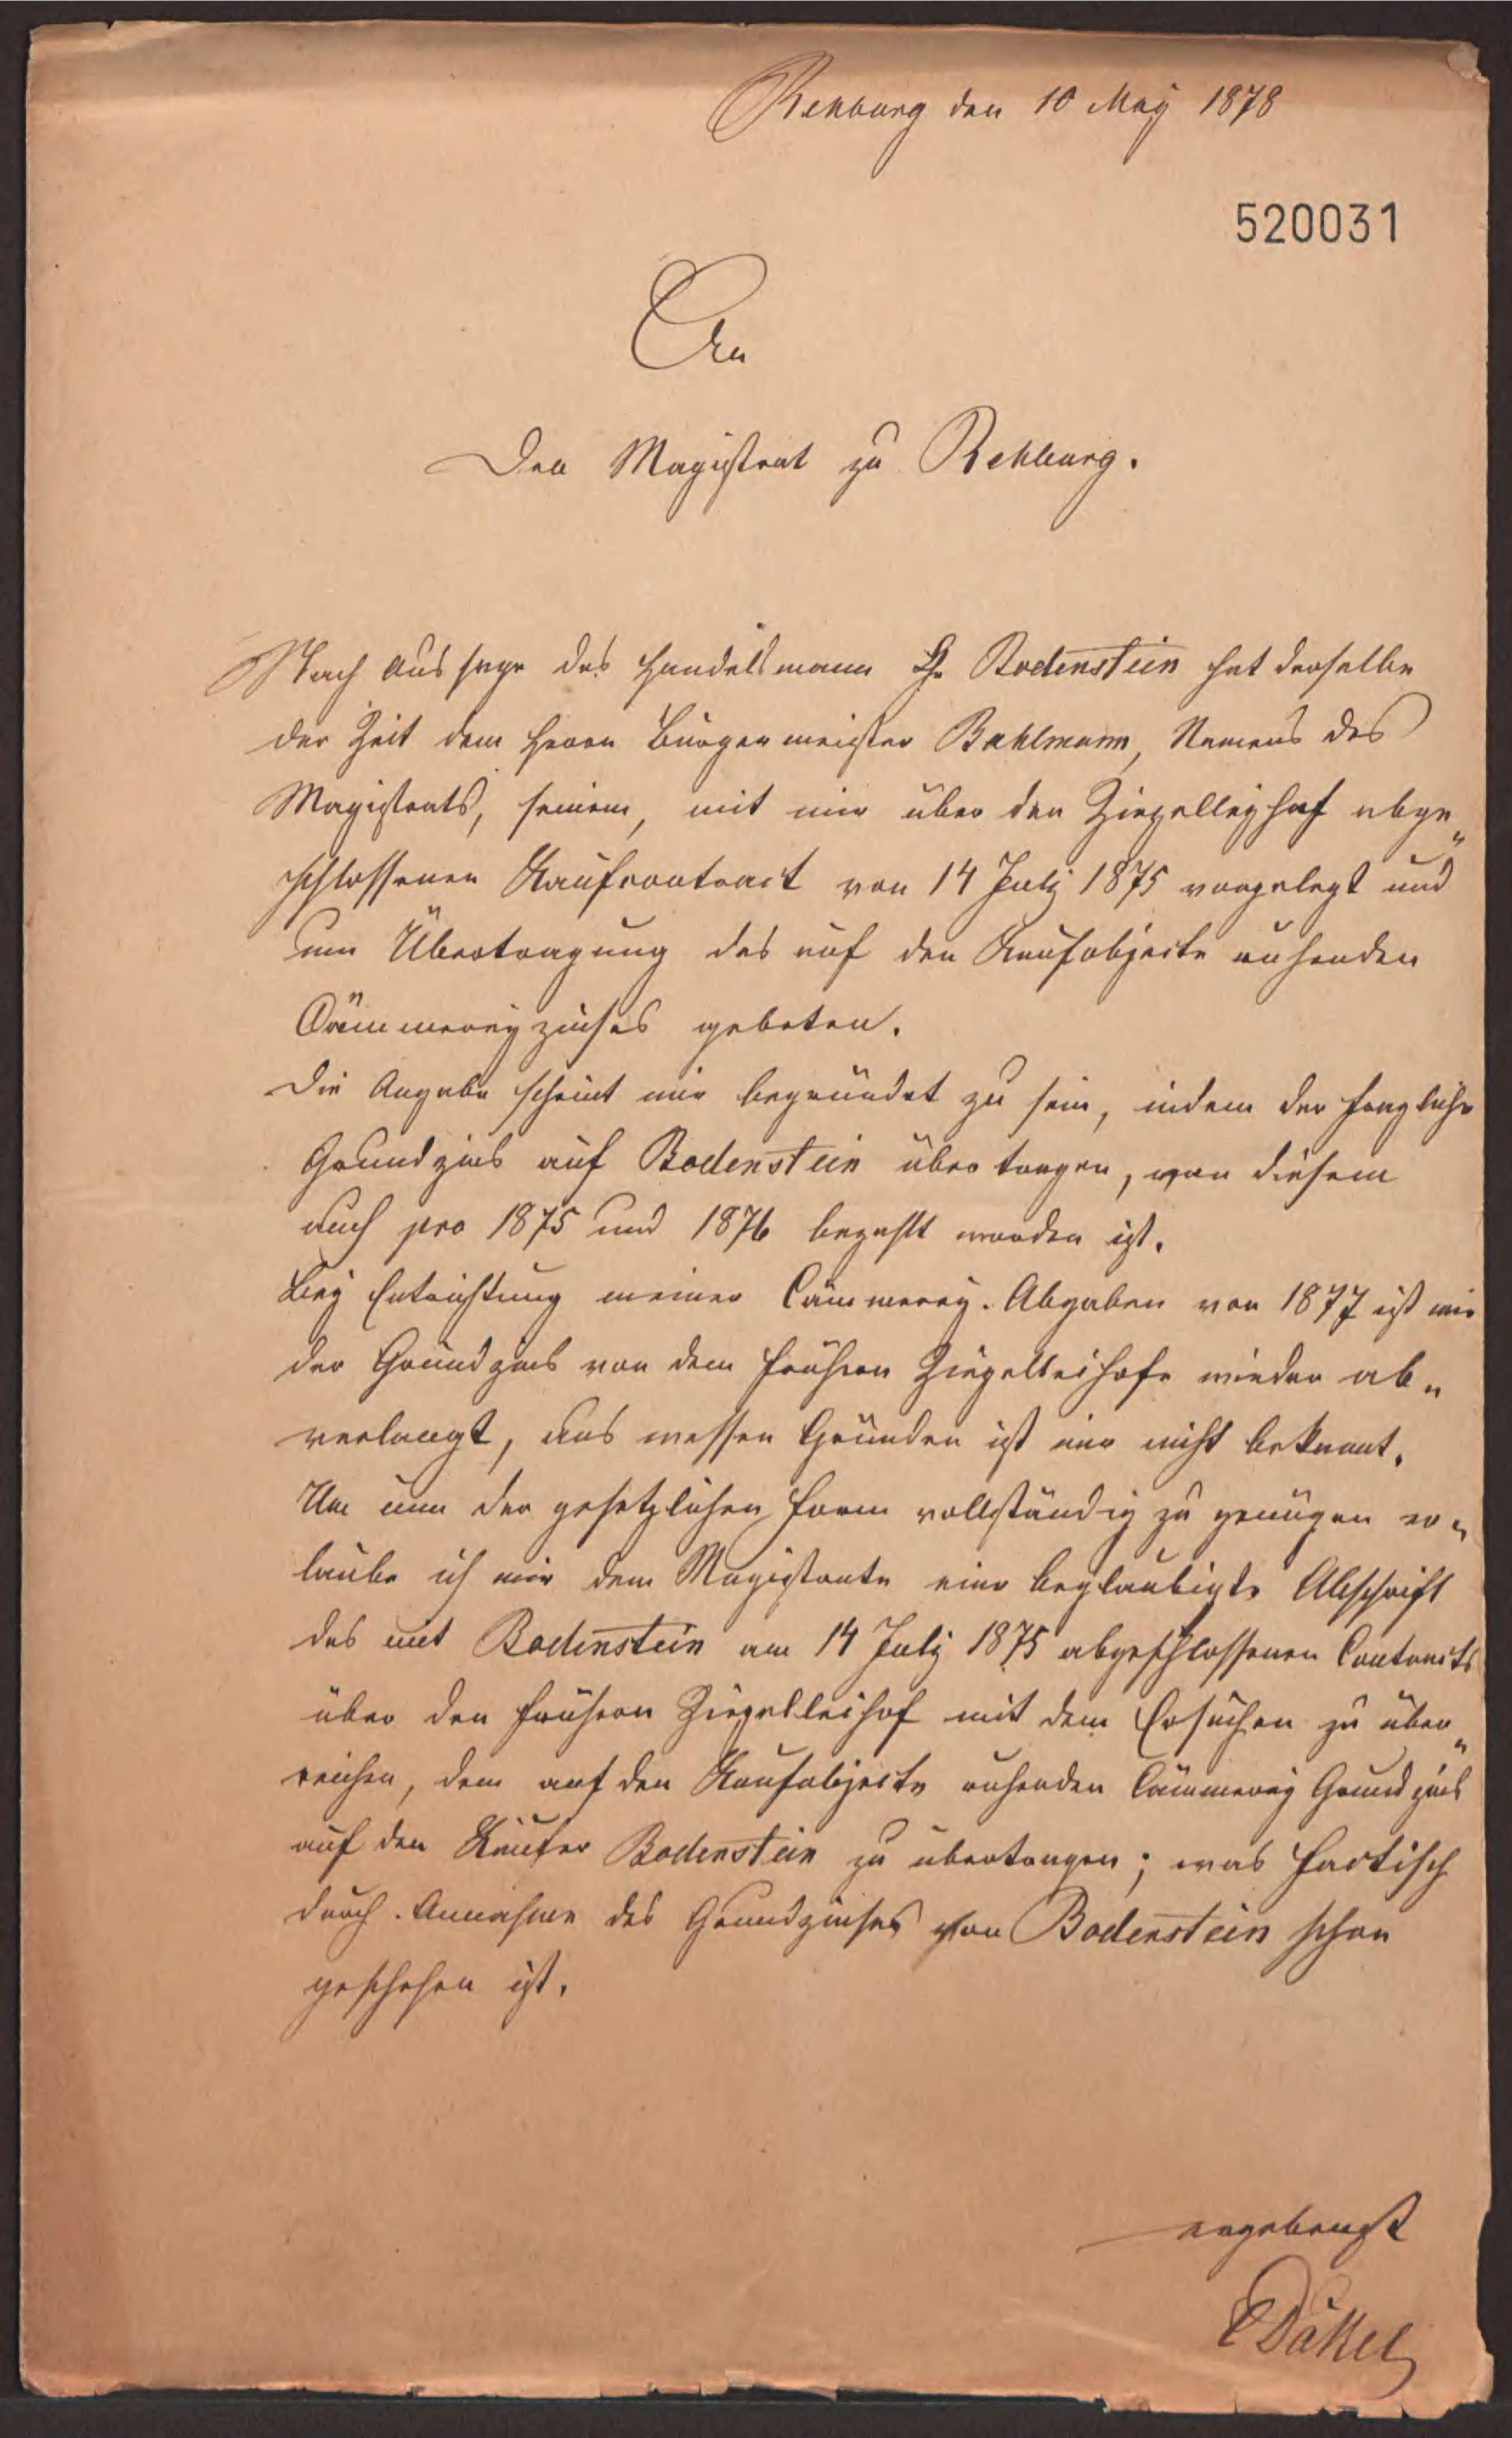 Rehburg den 10 May 1878
520031
An
Den Magistrat zu Rehburg.
Nach Aussage des Handelsmann Bodenstein hat derselbe
der Zeit dem Herrn Bürgermeister Bahlmann, Namens des
Magistrats, seinem, mit mir über den Ziegelleyhof abge„
schlossenen Kaufcontract von 14 July 1875 vorgelegt und
um Übertragung des auf den Kaufobjecte ruhenden
Cämmereyzinses gebeten.
Die Angabe scheint mir begründet zu sein, indem der fragliche
Grundzins auf Bodenstein übertragen, von diesem
auch pro 1875 und 1876 bezahlt worden ist.
Bey Entrichtung meiner Cämmerey-Abgaben von 1877 ist mir
der Grundzins von dem frühern Ziegelleihofe wieder ab„
verlangt, aus wessen Gründen ist mir nicht bekannt.
Um nun der gesetzlichen Form vollständig zu genügen er„
laube ich mir dem Magistrate eine beglaubigte Abschrift
des mit Bodenstein am 14 July 1875 abgeschlossenen Contracts
über den frühern Ziegelleihof mit dem Ersuchen zu über„
reichen, dem auf den Kaufobjecte ruhenden Cämmerey Grundzins
auf den Käufer Bodenstein zu übertragen; was factisch
durch Annahme des Grundzinses von Bodenstein schon
geschehen ist.
ergebenst